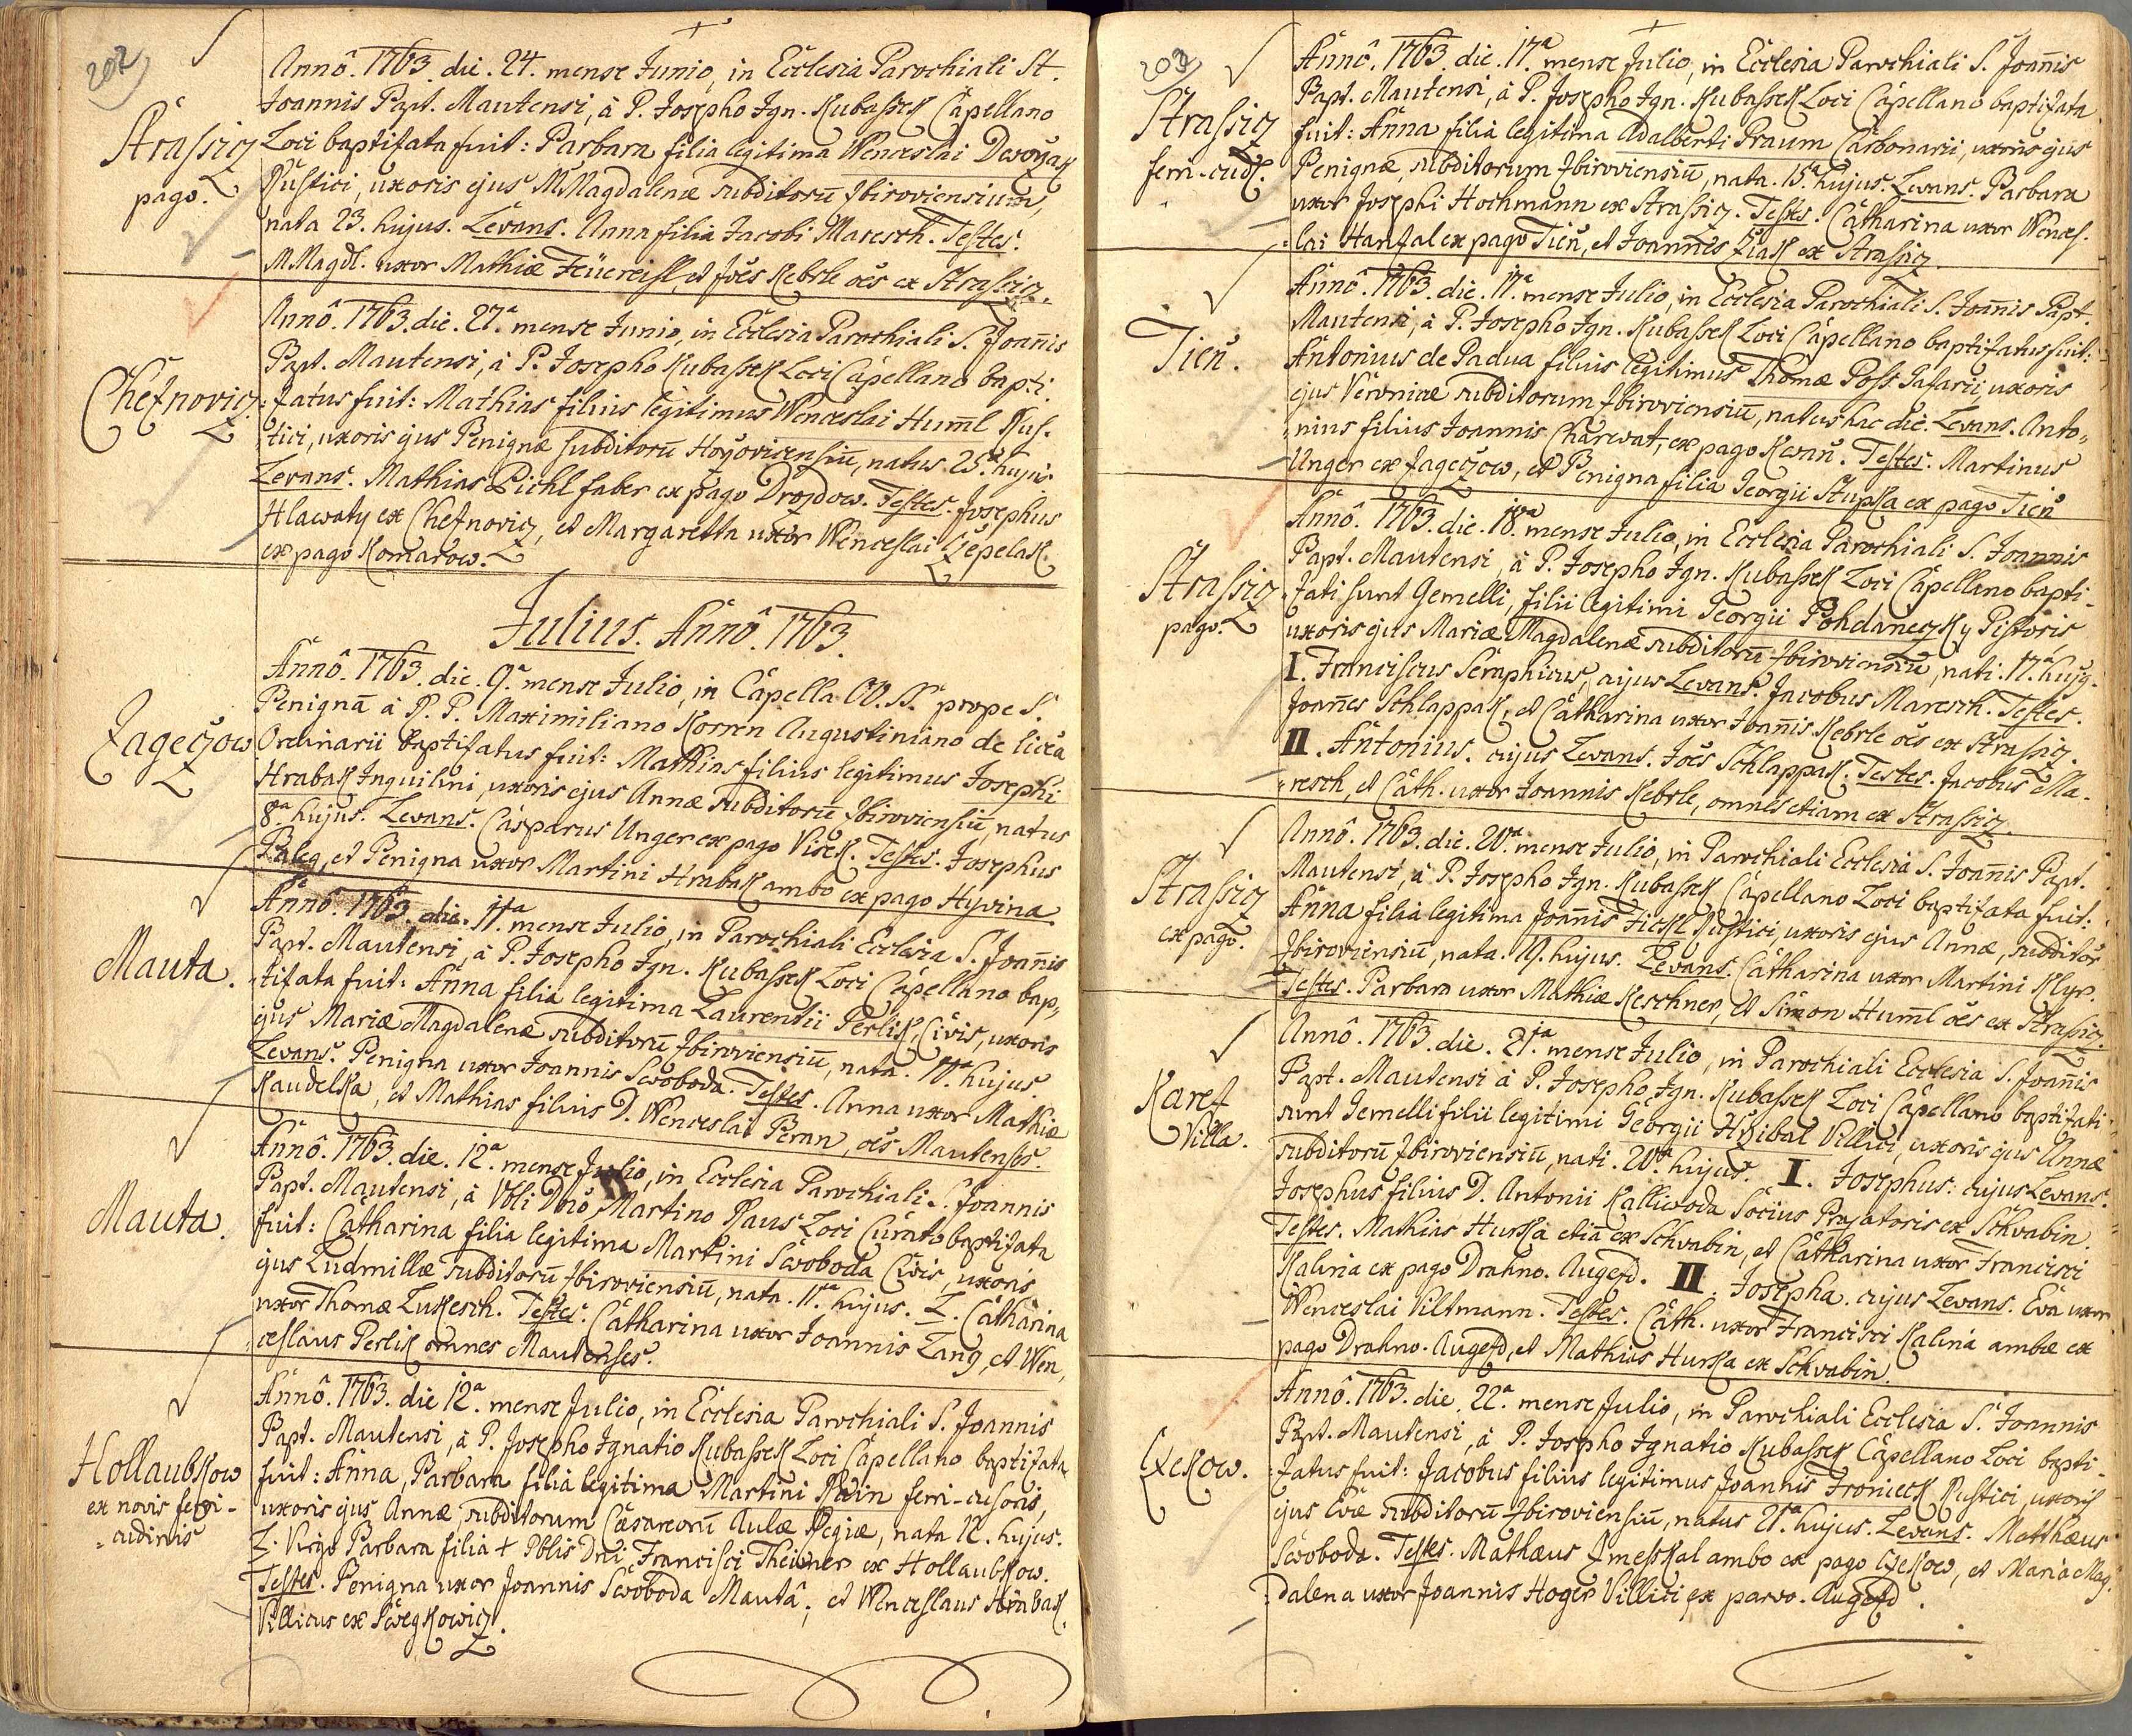 202
Strassicz
pago.
Annô. 1763. die. 24. mense Junio, in Ecclesia Parochiali St.
Joannis Bapt. Mautensi, à P. Josepho Ign. Kubassek Capellano
Loci baptisata fuit: Barbara filia legitima Wenceslai Dworzak
Rustici, uxoris ejus M Magdalenæ subditorũ Zbiroviensium,
nata 23. hujus. Levans. Anna filia Jacobi Maresch. Testes.
M Magdl. uxor Mathiæ Feüereisl, et Joẽs Kebrle oẽs ex Strassicz.
Cheznovicz
Annô. 1763. die. 27ª mense Junio, in Ecclesia Parochiali S. Joañis
Bapt. Mautensi, à P. Josepho Kubassek Loci Capellano bapti-
zatus fuit: Mathias filius legitimus Wenceslai Hum̃l Rus-
tici, uxoris ejus Benignæ subditorũ Hoŕovicensiũ, natus 25ª hujus
Levans. Mathias Pichl faber ex pago Drozdow. Testes. Josephus
Hlawaty ex Cheznovicz, et Margaretta uxor Wenceslai Czepelak
ex pago Komarow.
Julius. Annô. 1763.
Jageczow
Annô. 1763. die. 9ª mense Julio, in Capella OO. SS. prope S.
Benignã à R. P. Maximiliano Korren Augustiniano de licea
Ordinarii baptisatus fuit: Mathias filius legitimus Josephi
Hrabak Inquilini, uxoris ejus Annæ subditorũ Zbiroviensiũ, natus
8ª hujus. Levans. Casparus Unger ex pago Visek. Testes. Josephus
Baleg, et Benigna uxor Martini Hrabak ambo ex pago Hyvina
Mauta.
Annô. 1763. die. 11ª mense Julio, in Parochiali Ecclesia S. Joañis
Bapt. Mautensi, à P. Josepho Ign. Kubassek Loci Capellano bap-
tisata fuit: Anna filia legitima Laurentii Perlik, Civis, uxoris
ejus Mariæ Magdalenæ subditorũ Zbiroviensiũ, nata. 10ª hujus.
Levans. Benigna uxor Joannis Swoboda. Testes. Anna uxor Mathiæ
Kaudelka, et Mathias filius D. Wenceslai Beran, oẽs Mautenses.
Mauta.
Annô. 1763. die. 12ª mense Julio, in Ecclesia Parochiali S. Joannis
Bapt. Mautensi, à Vbli Dnõ Martino Raus Loci Curato baptisata
fuit: Catharina filia legitima Martini Swoboda Civis, uxoris
ejus Ludmillæ subditorũ Zbiroviensiũ, nata. 11ª hujus. L. Catharina
uxor Thomæ Lukesch. Testes. Catharina uxor Joannis Lang, et Wen-
ceslaus Perlik omnes Mautenses.
Hollaubkow
ex novis ferri-
cudinis
Annô. 1763. die 12ª mense Julio, in Ecclesia Parochiali S. Joannis
Bapt. Mautensi, à P. Josepho Ignatio Kubassek Loci Capellano baptisata
fuit: Anna, Barbara filia legitima Martini Rein ferri-cusoris,
uxoris ejus Annæ subditorum Cæsareorũ Aulæ Regiæ, nata 12. hujus.
L. Virgo Barbara filia + Pblis Dni Francisci Theiner ex Hollaubkow.
Testes. Benigna uxor Joannis Swoboda Mautâ, et Wenceslaus Hrabak
Villicus ex Swegkowicz.
203
Strassicz
ferri-cud.
Annô. 1763. die. 17ª mense Julio, in Ecclesia Parochiali S. Joañis
Bapt. Mautensi, à P. Josepho Ign. Kubassek Loci Capellano baptisata
fuit: Anna filia legitima Adalberti Braum Carbonarii, uxoris ejus
Benignæ, subditorum Zbiroviensiũ, nata. 15ª hujus. Levans. Barbara
uxor Josephi Hochmann ex Strassicz. Testes. Catharina uxor Wences-
lai Hanzal ex pago Tieñ, et Joannes Ziak ex Strassicz.
Tieñ.
Annô. 1763. die. 17ª mense Julio, in Ecclesia Parochiali S. Joañis Bapt.
Mautensi, à P. Josepho Ign. Kubassek Loci Capellano baptisatus fuit:
Antonius de Padua filius legitimus Thomæ Poss Pafarii, uxoris
ejus Veronicæ subditorum Zbiroviensiũ, natus hac die. Levans. Anto-
nius filius Joannis Charwat, ex pago Kwañ. Testes. Martinus
Unger ex Jageczow, et Benigna filia Georgii Stupka ex pago Tieñ
Strassicz
pago.
Annô. 1763. die. 18ª mense Julio, in Ecclesia Parochiali S. Joannis
Bapt. Mautensi, à P. Josepho Ign. Kubassek Loci Capellano bapti-
zati sunt Gemelli, filii legitimi Georgii Pohdaneczky Pistoris,
uxoris ejus Mariæ Magdalenæ subditorũ Zbiroviensiũ, nati. 17ª hujg.
I. Franciscus Seraphicus, cujus Levans. Jacobus Maresch. Testes.
Joañes Schlappak, et Catharina uxor Joañis Kebrle oẽs ex Strassicz.
II. Antonius. cujus Levans. Joẽs Schlappak. Testes. Jacobus Ma-
resch, et Cath. uxor Joannis Kebrle, omnes etiam ex Strassicz.
Strassicz
ex pago.
Annô. 1763. die. 20ª mense Julio, in Parochiali Ecclesia S. Joañis Bapt.
Mautensi, à P. Josepho Ign. Kubassek Capellano Loci baptisata fuit:
Anna filia legitima Joañis Ficzl Rustici, uxoris ejus Annæ, subditor̃
Zbiroviensiũ, nata. 19. hujus. Levans. Catharina uxor Martini Klyr.
Testes. Barbara uxor Mathiæ Keschner, et Simon Hum̃l oẽs ex Strassicz.
Karez
Villa.
Annô. 1763. die. 21ª mense Julio, in Parochiali Ecclesia S. Joañis
Bapt. Mautensi à P. Josepho Ign. Kubassek Loci Capellano baptisati
sunt Gemelli filii legitimi Georgii Hzibal Villici, uxoris ejus Annæ
subditorũ Zbiroviensiũ, nati. 20ª hujus. I. Josephus: cujus Levans.
Josephus filius D. Antonii Kalliwoda Socius Braxatoris ex Schvabin.
Testes. Mathias Hurka etiã ex Schvabin, et Catharina uxor Francisci
Kalina ex pago Drahno. Augezd. II. Josepha. cujus Levans. Eva uxor
Wenceslai Viltmann. Testes. Cath. uxor Francisci Kalina ambæ ex
pago Drahno. Augezd, et Mathias Hurka ex Schvabin.
Czekow.
Annô. 1763. die. 22ª mense Julio, in Parochiali Ecclesia S. Joannis
Bapt. Mautensi, à P. Josepho Ignatio Kubassek Capellano Loci bapti-
zatus fuit: Jacobus filius legitimus Joannis Fronieck Rustici, uxoris
ejus Evæ subditorũ Zbiroviensiũ, natus 21ª hujus. Levans. Matthæus
Swoboda. Testes. Mathæus Zmeskal ambo ex pago Czekow, et Maria Mag-
dalena uxor Joannis Hoger Villici ex parvo. Augezd.